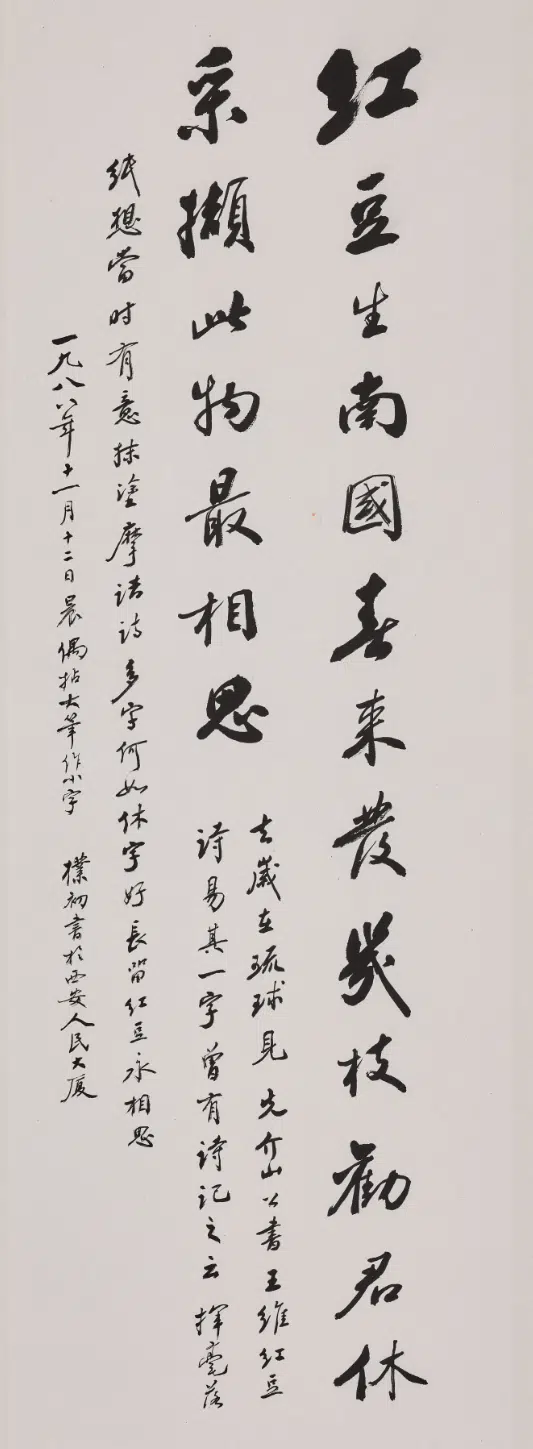 紅豆生南國春来發幾枝勸君休
采擷此物最相思
去歲在琉球見 先介山公書王維紅豆
詩易其一字曾有詩記之云 揮毫落
紙想當時有意抹塗摩詰詩多字何如休字好長留紅豆永相思
一九八八年十一月十二日晨偶拈大筆作小字 樸初書於西安人民大厦